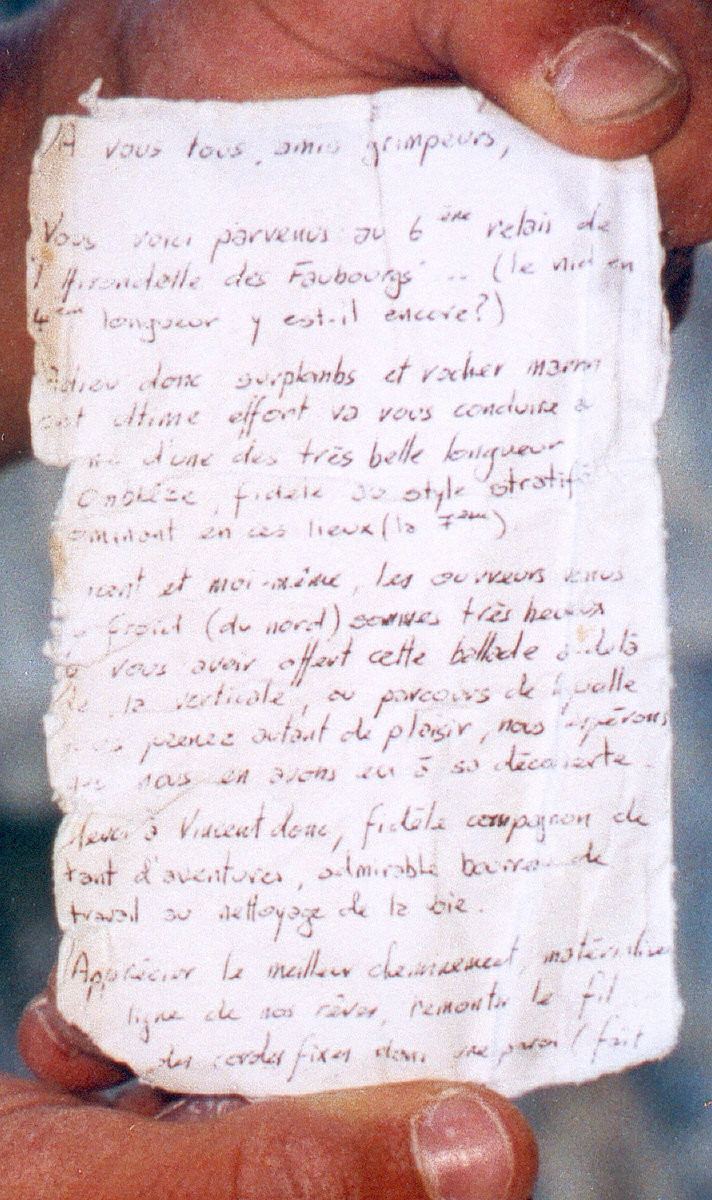 A vous tous, amis grimpeurs,
Vous voici parvenus au 6 ème relais de
l'Hirondelle des Faubourgs ... (le nid en
4ème longueur y est-il encore?)
Adieu donc surplombs et rocher marron
ultime effort va vous conduire à
d'une des très belle longueur
Ombléze, fidèle au style stratifié
ominant en ces lieux (la 7ème)
et moi-même, les ouvreurs venus
froid (du nord) sommes très heureux
vous avoir offert cette ballade
de la verticale, au parcours de laquelle
prenez autant de plaisir, nous espérons
que nous en avons eu à sa découverte.
Merci à Vincent donc, fidèle compagnon de
tant d'aventures, admirable bourreau de
travail au nettoyage de la voie.
Apprécier le meilleur cheminement, matérialiser
ligne de nos rêves, remonter le fil
des cordes fixes dans une paroi (fait